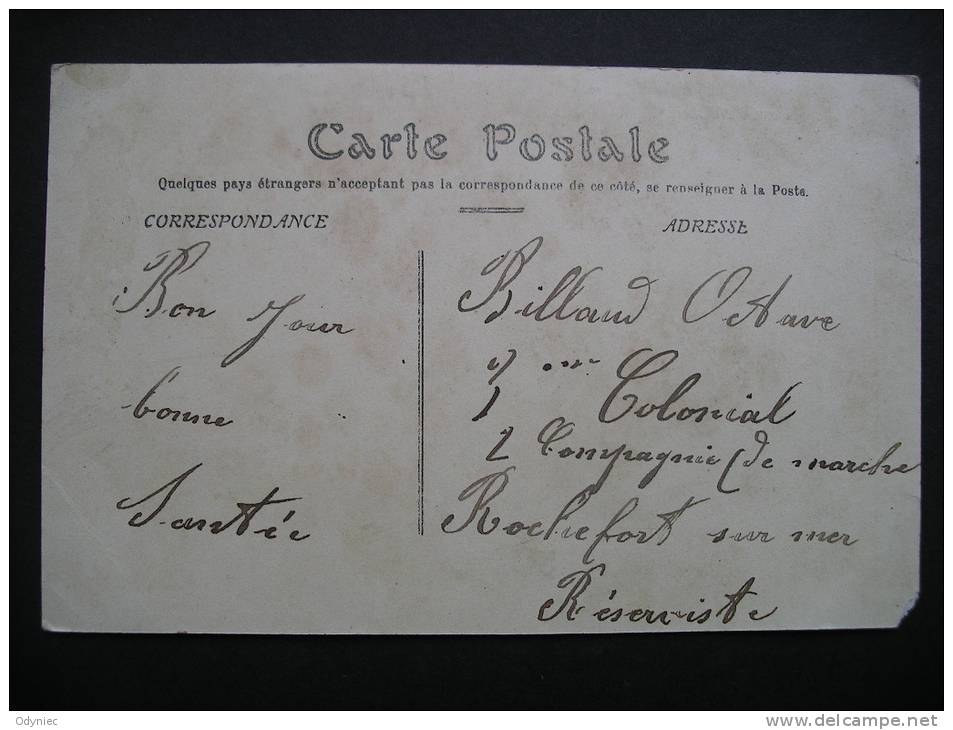 Carte Postale
Quelques pays étrangers n'acceptant pas la correspondance de ce côté, se renseigner à la Poste.
CORRESPONDANCE
ADRESSE
Bon Jour
bonne
Santée
Billaud Octave
7 ème
1 Colonial
2 Compagnie (de marche
Rochefort sur mer
Réserviste
Odyniec
www.delcampe.net